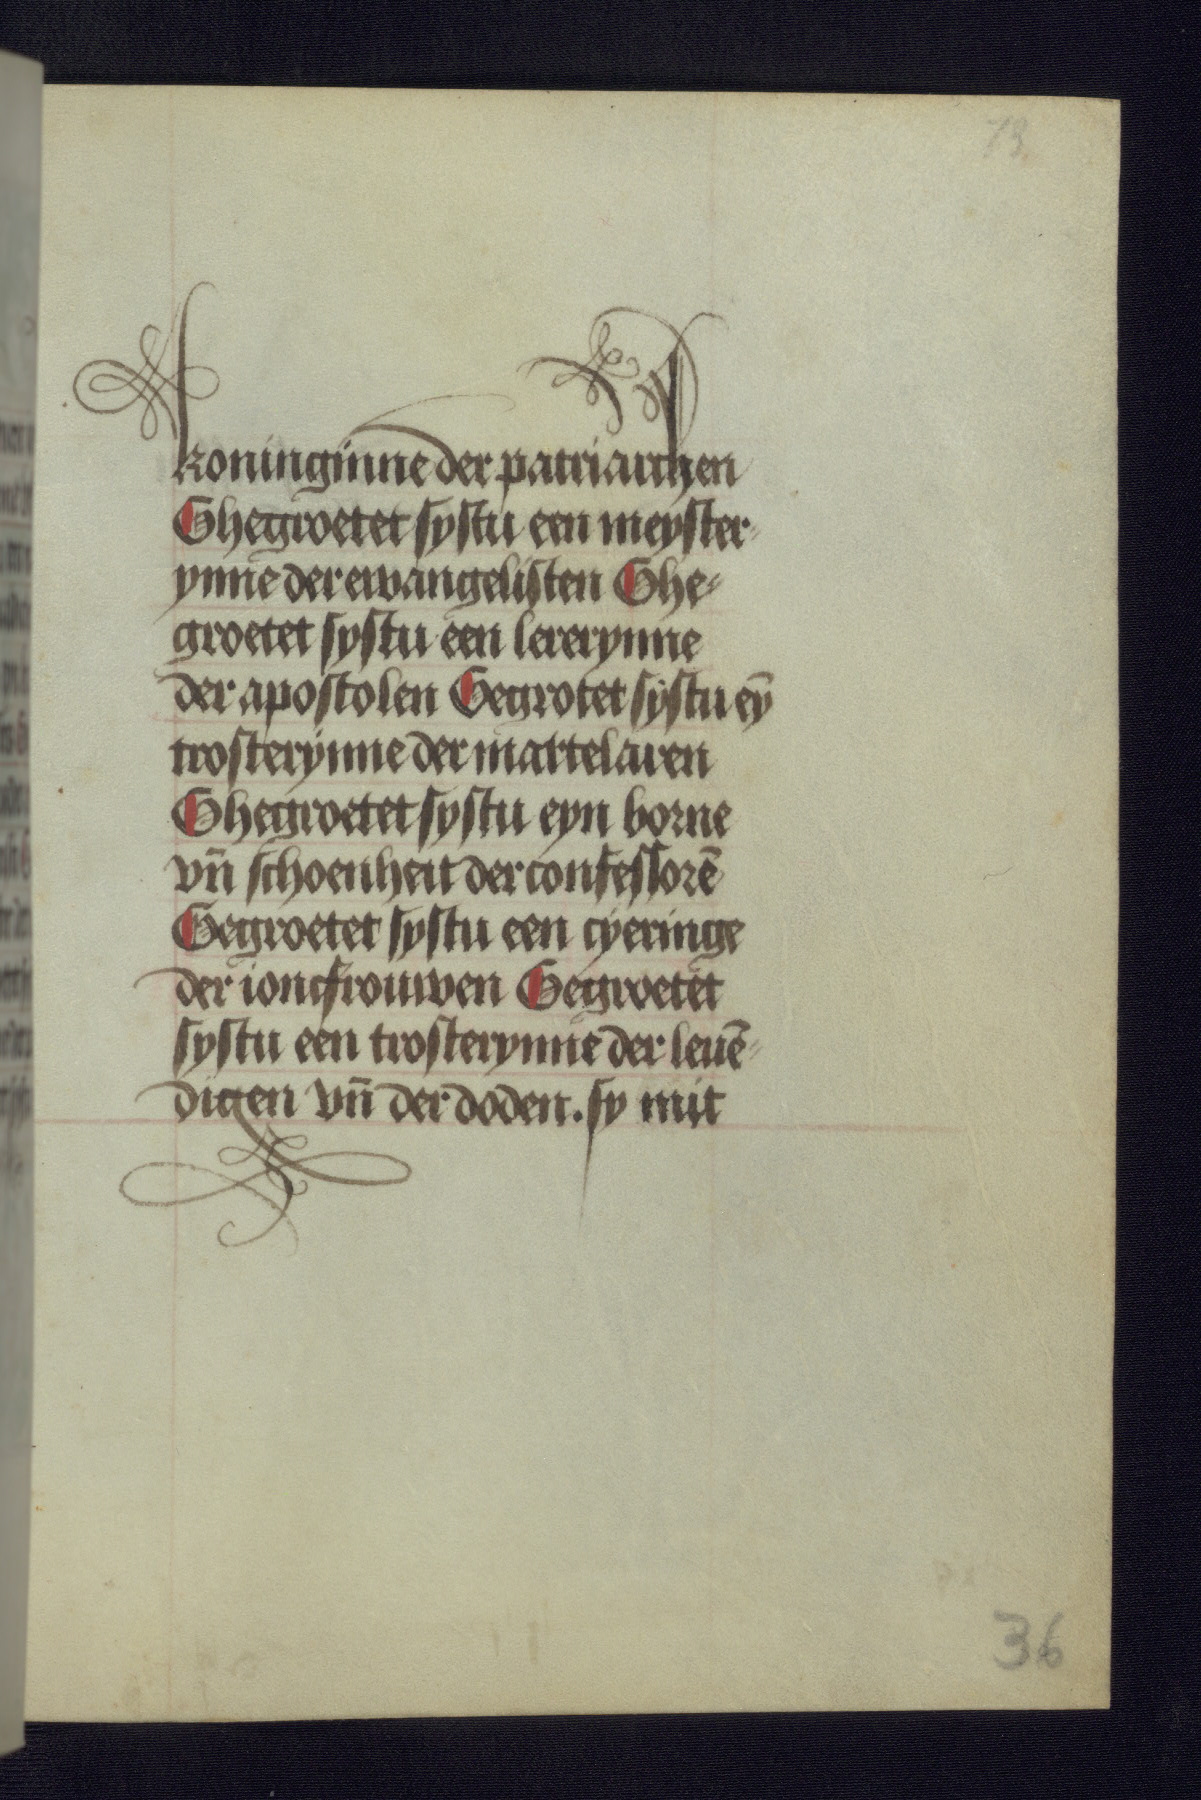 73
koninginne der patriarchen
Ghegroetet systu een meyster-
ynne der ewangelisten Ghe-
groetet systu een lererynne
der apostolen Gegrotet systu eȳ
trosterynne der martelaren
Ghegroetet systu eyn borne
vn̄ schoenheit der confessorē
Gegroetet systu een cyeringe
der ioncfrouwen Gegroetet
systu een trosterynne der leuē-
digen vn̄ der doden. sy mit
36